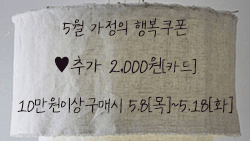 5월 가정의 행복쿠폰
♥추가 2,000원[카드]
10만원이상구매시 5.8[목]~5.18[화]